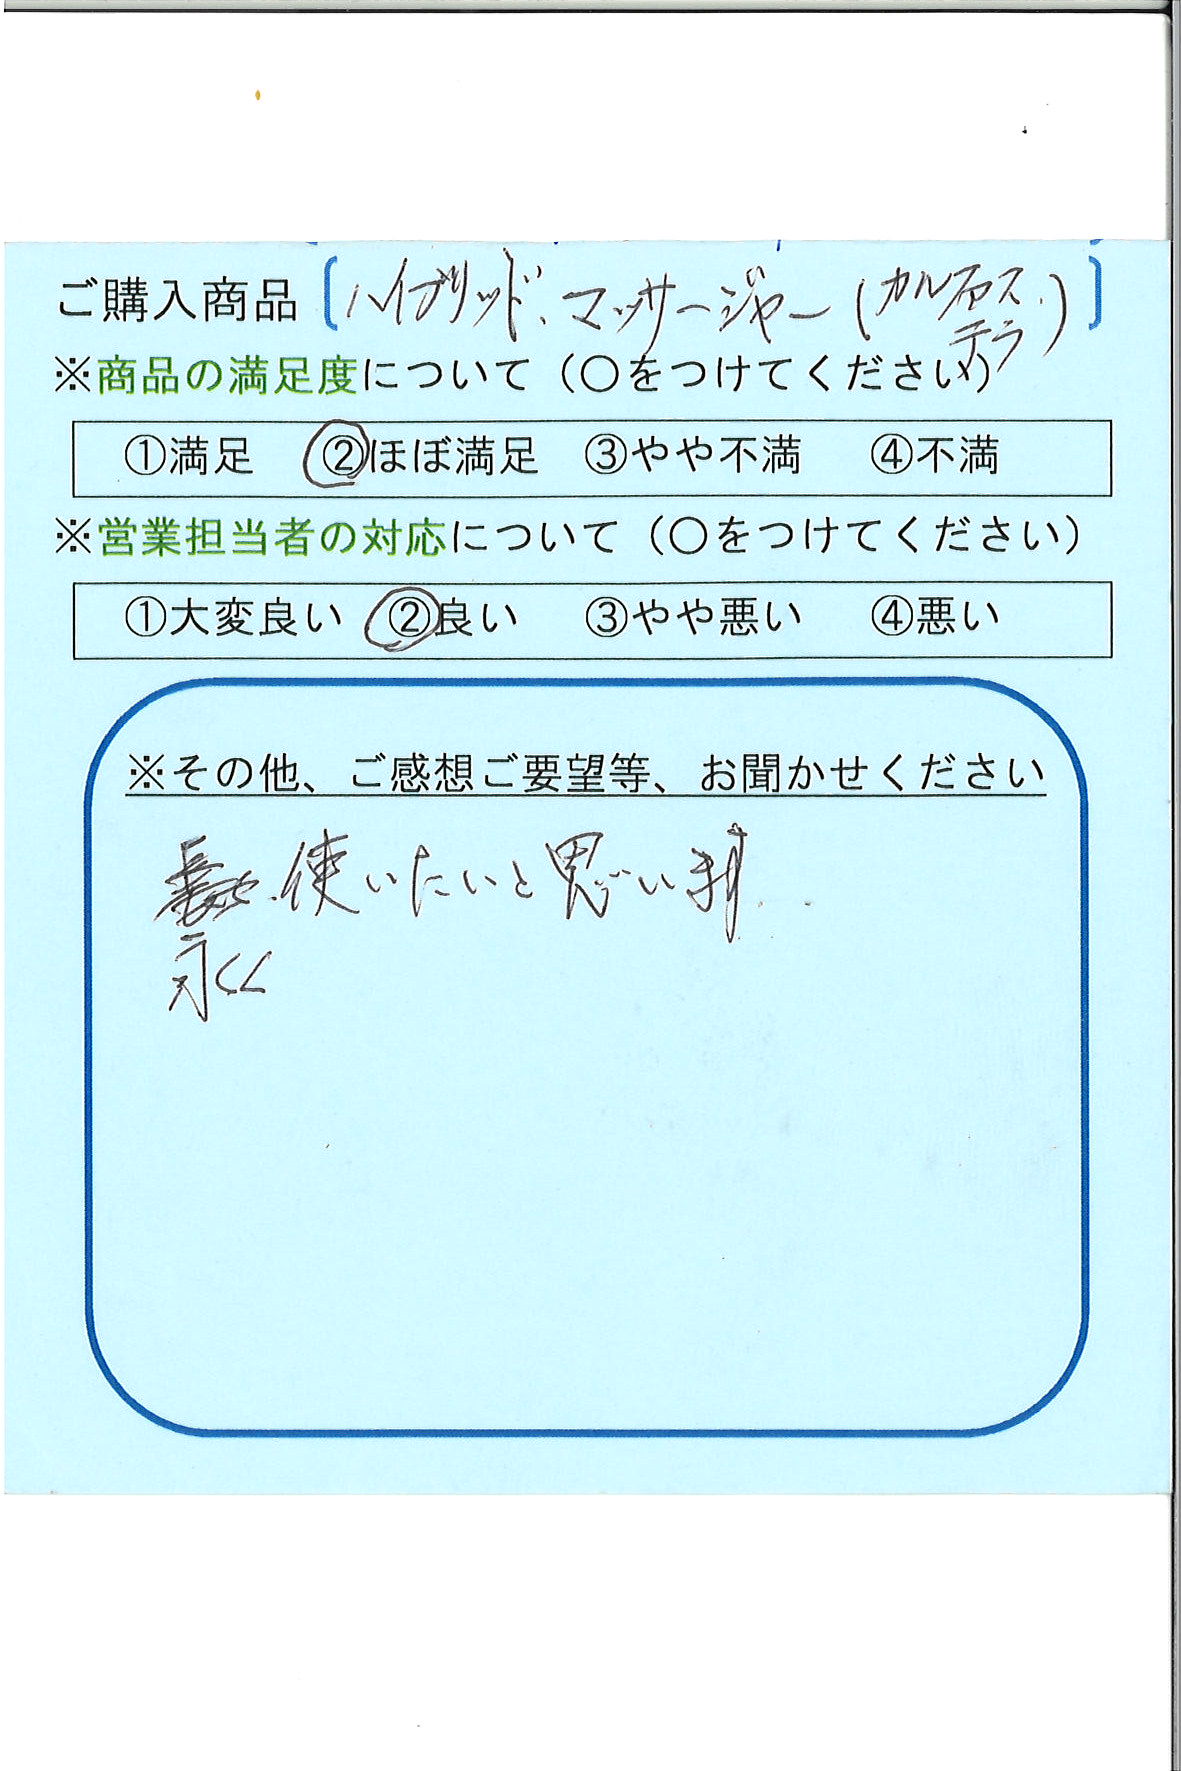 ご購入商品 [ハイブリッド、マッサージャー(カルアス、
テラ)]
※商品の満足度について（○をつけてください）
①満足 ②ほぼ満足 ③やや不満 ④不満
※営業担当者の対応について（○をつけてください）
①大変良い ②良い ③やや悪い ④悪い
※その他、ご感想ご要望等、お聞かせください
使いたいと思います
永く